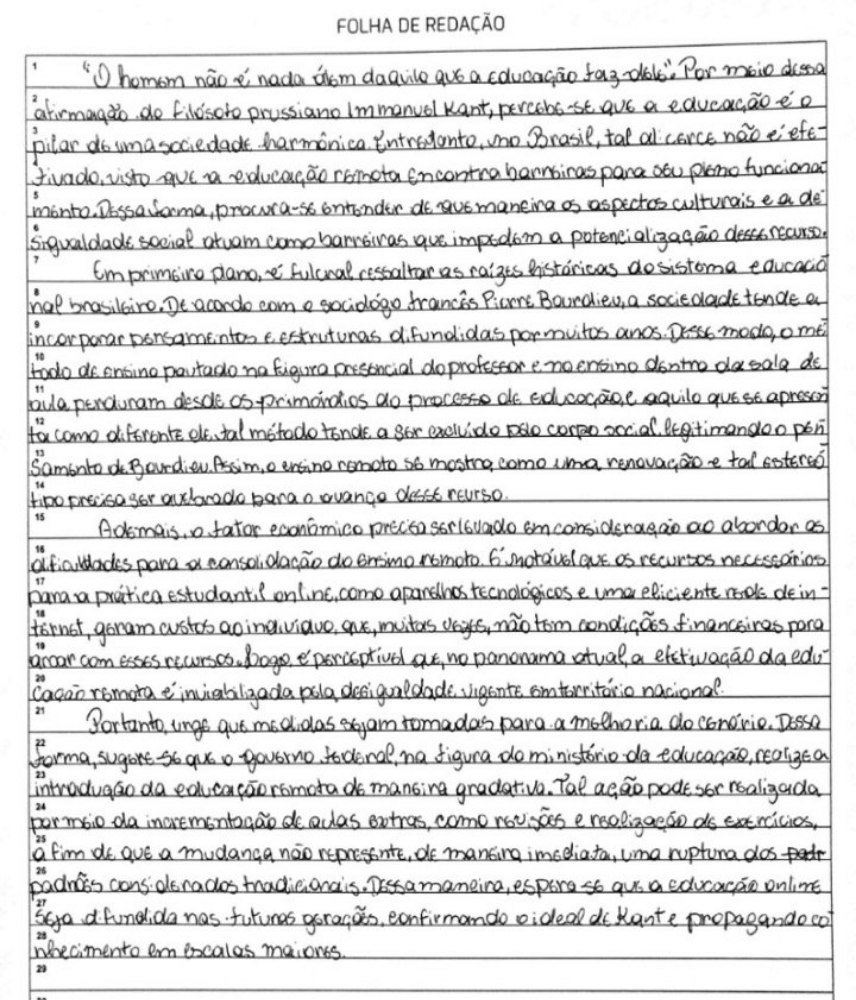 FOLHA DE REDAÇÃO
1 "O homem não é nada além daquilo que a educação faz dele". Por meio dessa
2 afirmação do filósofo prussiano Immanuel Kant, percebe-se que a educação é o
3 pilar de uma sociedade harmônica. Entretanto, no Brasil, tal alicerce não é efe-
tivado, visto que a educação remota encontra barreiras para seu pleno funciona
5 mento. Dessa forma, procura-se entender de que maneira os aspectos culturais e a de
6 sigualdade social atuam como barreiras que impedem a potencialização desse recurso.
7 Em primeiro plano, é fulcral ressaltar as raízes históricas do sistema educacio
8 nal brasileiro. De acordo com o sociólogo francês Pierre Bourdieu, a sociedade tende a
9 incorporar pensamentos e estruturas difundidas por muitos anos. Desse modo, o mé
10 todo de ensino pautado na figura presencial do professor e no ensino dentro da sala de
11 aula perduram desde os primórdios do processo de educação, e aquilo que se apresen
12 ta como diferente de tal método tende a ser excluído pelo corpo social, legitimando o pen
13 samento de Bourdieu. Assim, o ensino remoto se mostra como uma renovação e tal estereó
14 tipo precisa ser quebrado para o avanço desse reurso.
15 Ademais, o fator econômico precisa ser levado em consideração ao abordar as
16 dificuldades para a consolidação do ensino remoto. É notável que os recursos necessários
17 para a prática estudantil online, como aparelhos tecnológicos e uma eficiente rede de in-
18 ternet, geram custos ao indivíduo, que, muitas vezes, não tem condições financeiras para
19 arcar com esses recursos. Logo é perceptível que, no panorama atual, a efetivação da edu-
20 cação remota é inviabilizada pela desigualdade vigente em território nacional.
21 Portanto, urge que medidas sejam tomadas para a melhoria do cenário. Dessa
22 forma, sugere-se que o governo federal, na figura do ministério da educação, realize a
23 introdução da educação remota de maneira gradativa. Tal ação pode ser realizada
24 por meio da incrementação de aulas extras, como revisões e realização de exercícios,
25 a fim de que a mudança não represente, de maneira imediata, uma ruptura dos padr
26 padrões considerados tradicionais. Dessa maneira, espera-se que a educação online
27 seja difundida nas futuras gerações, confirmando o ideal de Kant e propagando co
28 nhecimento em escalas maiores.
29